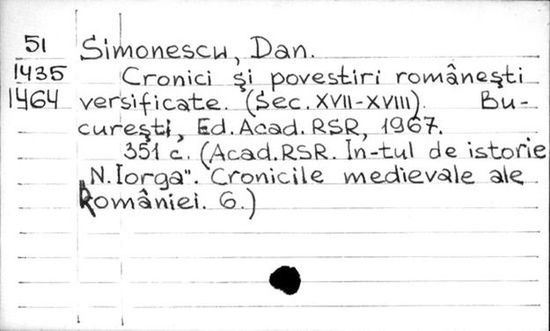 51 Simonescu, Dan.
1435 Cronici și povestiri românești
1464 versificate. (Sec. XVII-XVIII). Bu-
curești, Ed. Acad. RSR, 1967.
351 c. (Acad. RSR. In-tul de istorie
„N. Iorga". Cronicile medievale ale
României. 6.)